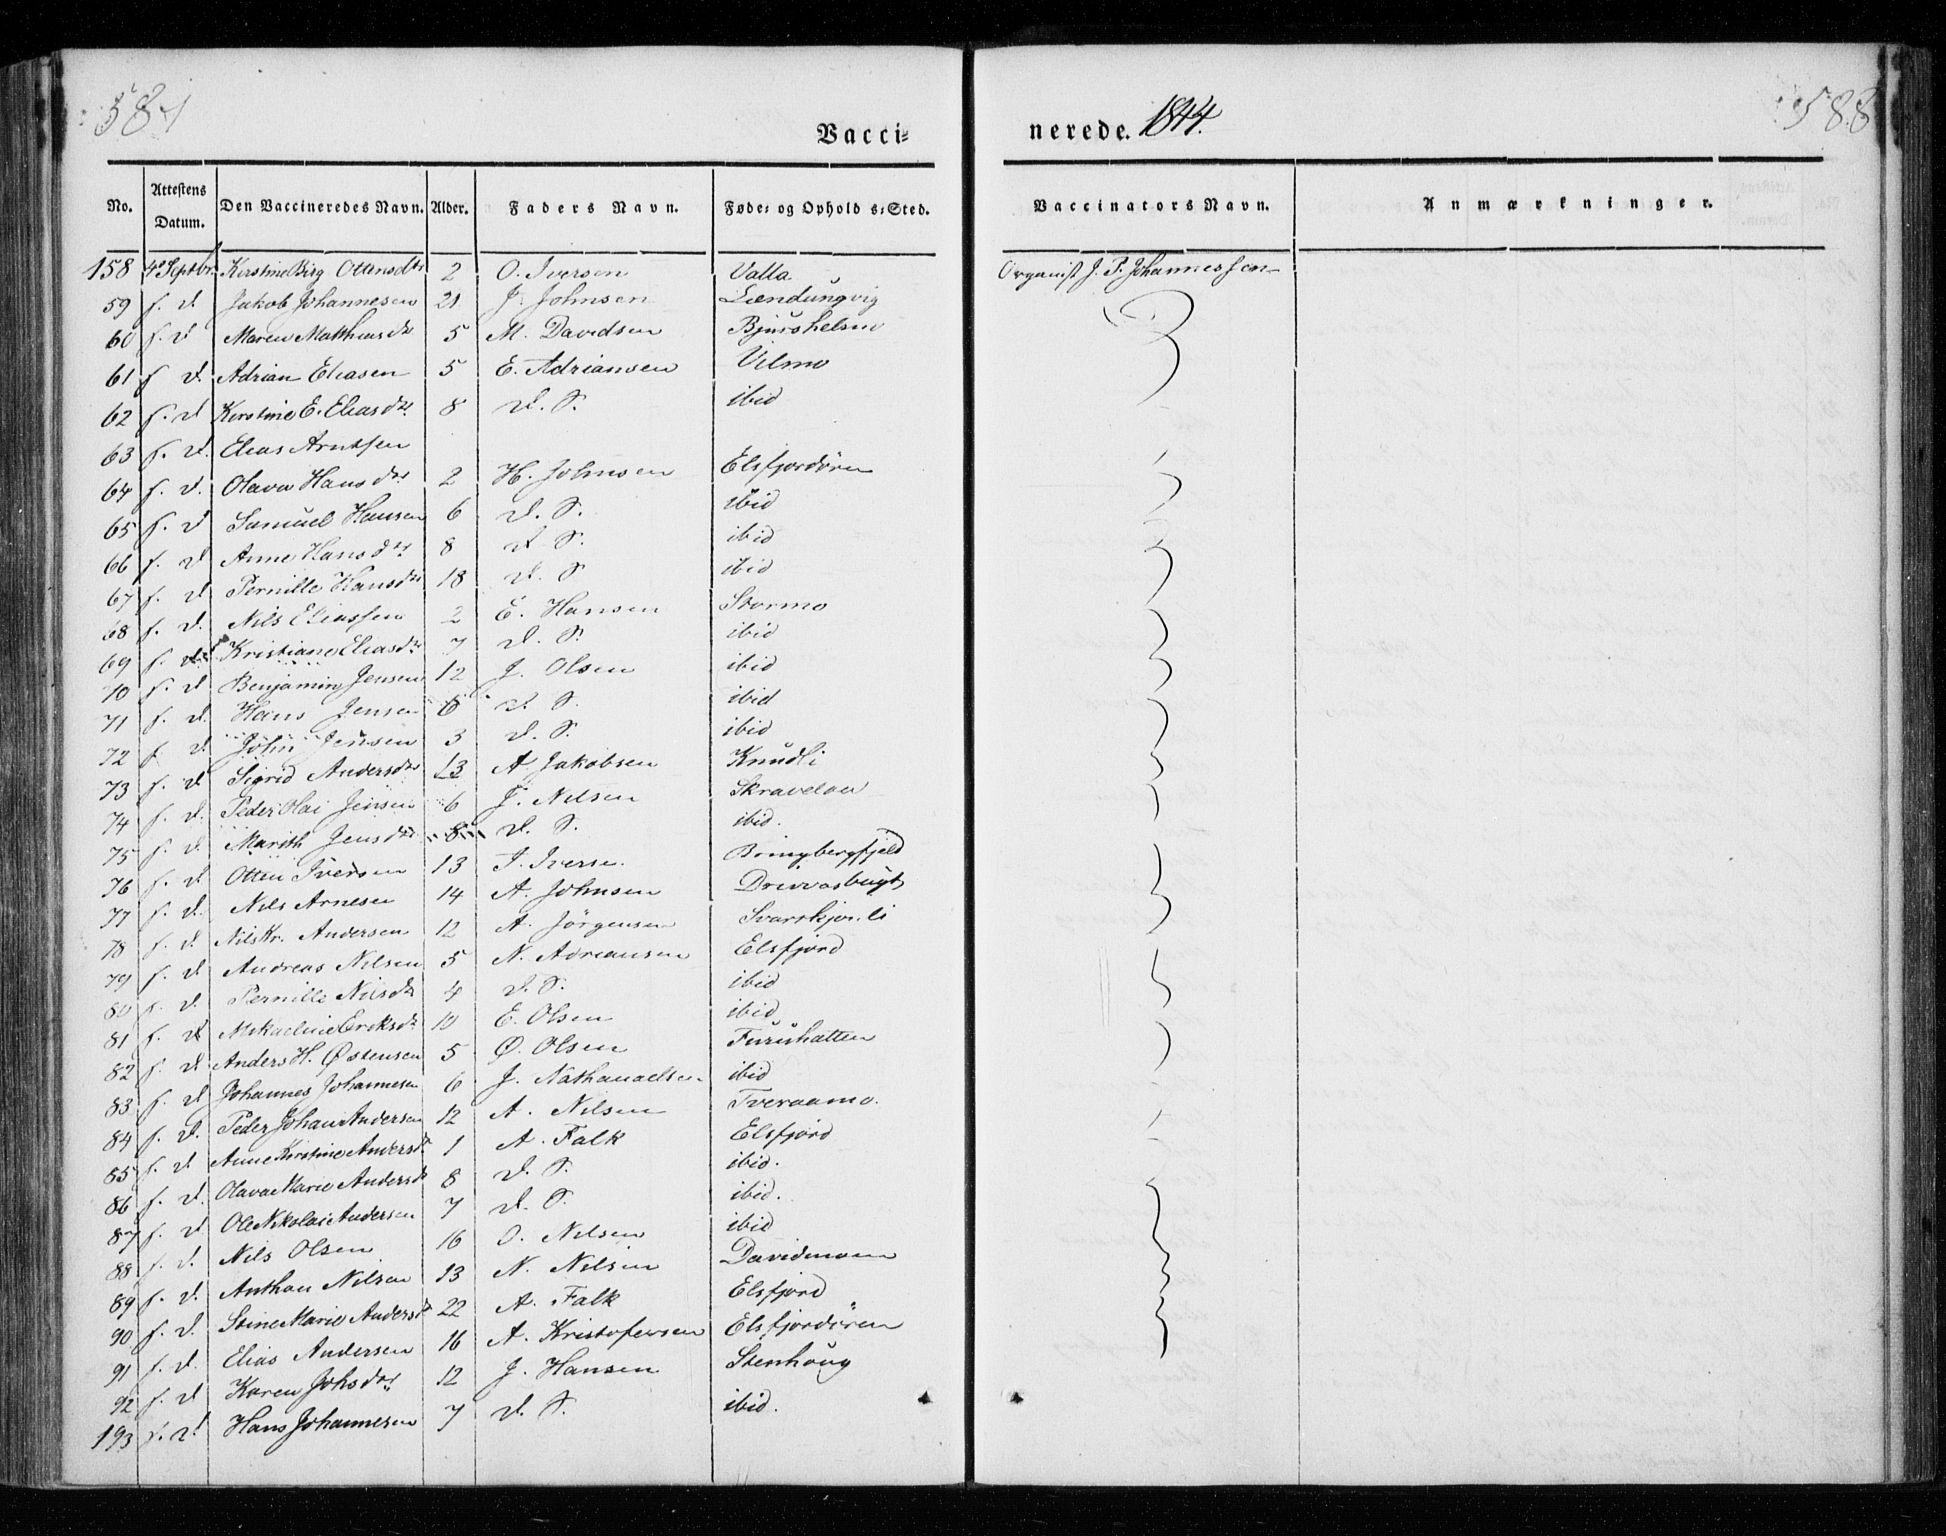 587 588
Vacci= nerede. 1844.
No. Attestens Datum. Den Vaccineredes Navn. Alder. Faders Navn. Føde= og Ophold s=Sted. Vaccinators Navn. Anmærkninger.
158 4de Septbr. Kirstine Birg Ottensdtr 2 O. Iversen Valla Organist J. P. Johannessen
59 s. d. Jakob Johannesen 21 J. Johnsen
60 s. d. Maren Matthiasdr 5 M. Davidsen
61 s. d. Adrian Eliasen 5 E. Adriansen Vilmo
62 s. d. Kirstine E. Eliasdr 8 d. S. ibid
63 s. d. Elias Arntsen
64 s. d. Olava Hansdr 2 H. Johnsen Elsfjordören
65 s. d. Samuel Hansen 6 d. S. ibid
66 s. d. Anne Hansdr 8 d. S. ibid
67 s. d. Pernille Hansdr 18 d. S. ibid
68 s. d. Nils Eliassen 2 E. Hansen Stormo
69 s. d. Kristiane Eliasdr 7 d. S. ibid
70 s. d. Benjamin Jensen 12 J. Olsen ibid
71 s. d. Hans Jensen 8 d. S. ibid
72 s. d. John Jensen 3 d. S. ibid
73 s. d. Sigrid Andersdr 13 A Jakobsen Knudli
74 s. d. Peder Olai Jensen 6 J. Nilsen Skravelau
75 s. d. Marith Jensdr 8 d. S. ibid.
76 s. d. Otten Iversen 13 I. Iverse. Bringbergfjeld
77 s. d. Nils Arnesen 14 A. Johnsen
78 s. d. Nils Kr. Andersen 12 A. Jörgensen
79 s. d. Andreas Nilsen 5 N. Adriansen Elsfjord
80 s. d. Pernille Nilsdr 4 d. S. ibid
81 s. d. Mikaeline Eriksdr 10 E. Olsen ibid
82 s. d. Anders H. Østensen 5 Ø. Olsen Furuhatten
83 s. d. Johannes Johannesen 6 J. Nathanaelsen ibid
84 s. d. Peder Johan Andersen 12 A. Nilsen Tveraamo.
85 s. d. Anne Kirstine Andersdr 1 A. Falk Elsfjord
86 s. d. Olava Marie Andersdr 8 d. S. ibid.
87 s. d. Ole Nikolai Andersen 7 d. S. ibid.
88 s. d. Nils Olsen 16 O. Nilsen ibid
89 s. d. Anthon Nilsen 13 N. Nilsen Davidmoen
90 s. d. Stine Marie Andersdr 22 A. Falk Elsfjord
91 s. d. Elias Andersen 16 A. Kristofersen Elsfjordören
92 s. d. Karen Johsdr 12 J. Hansen Stenhoug
193 s. d. Hans Johannesen 7 d. S. ibid.